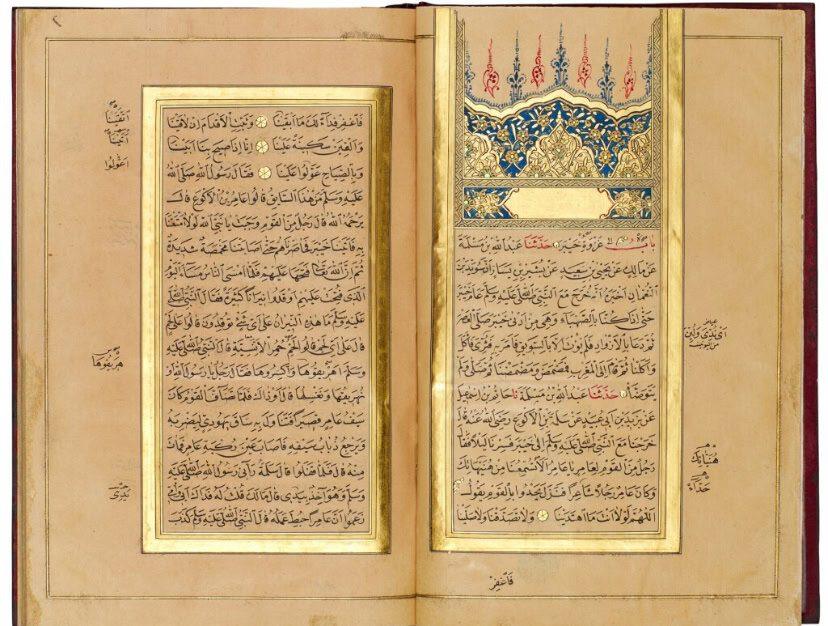 باب غزوة خيبر حدثنا عبد الله بن مسلمة
عن مالك عن يحيى بن سعيد عن بشير بن يسار ان سويد بن
النعمان اخبره انه خرج مع النبي صلى الله عليه وسلم عام خيبر
حتى اذا كنا بالصهباء وهي من ادنى خيبر صلى العصر
ثم دعا بالازواد فلم يؤت الا بالسويق فامر به فثري فاكل
واكلنا ثم قام الى المغرب فمضمض ومضمضنا ثم صلى ولم
يتوضأ حدثنا عبد الله بن مسلمة نا حاتم بن اسمعيل
عن يزيد بن ابي عبيد عن سلمة بن الاكوع رضي الله عنه قال
خرجنا مع النبي صلى الله عليه وسلم الى خيبر فسرنا ليلا فقال
رجل من القوم لعامر يا عامر الا تسمعنا من هنيهاتك
وكان عامر رجلا شاعرا فنزل يحدو بالقوم يقول
اللهم لولا انت ما اهتدينا ولا تصدقنا ولا صلينا
هنياتك
حداء
فاغفر
فاغفر فداء لك ما ابقينا وثبت الاقدام ان لاقينا
والقين سكينة علينا انا اذا صيح بنا ابينا
وبالصياح عولوا علينا فقال رسول الله صلى الله
عليه وسلم من هذا السائق قالوا عامر بن الاكوع قال
يرحمه الله قال رجل من القوم وجبت يا نبي الله لولا امتعتنا
به فاتينا خيبر فحاصرناهم حتى اصابتنا مخمصة شديدة
ثم ان الله تعالى فتحها عليهم فلما امسى الناس مساء اليوم
الذي فتحت عليهم اوقدوا نيرانا كثيرة فقال النبي صلى الله
عليه وسلم ما هذه النيران على اي شئ توقدون قالوا على لحم
قال على اي لحم قالوا لحم حمر الانسية قال النبي صلى الله عليه
وسلم اهريقوها واكسروها فقال رجل يا رسول الله او
نهريقها ونغسلها قال او ذاك فلما تصاف القوم كان
سيف عامر قصيرا فتناول به ساق يهودي ليضربه
ويرجع ذباب سيفه فاصاب عين ركبة عامر فمات
منه قال فلما قفلوا قال سلمة رآني رسول الله صلى الله عليه
وسلم وهو آخذ بيدي قال ما لك قلت له فداك ابي وامي
زعموا ان عامرا حبط عمله قال النبي صلى الله عليه وسلم كذب
اتقينا
اتينا
اعولوا
هريقوها
يدي